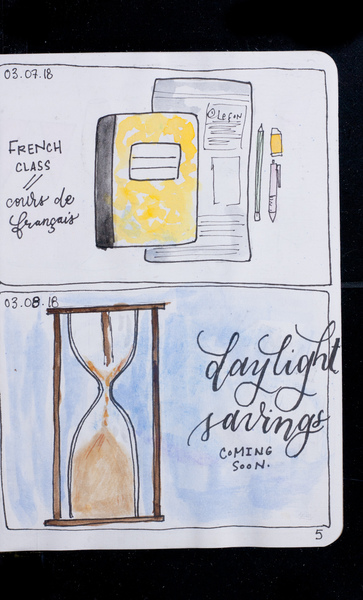 03.07.18
FRENCH
CLASS
//
cours de
français
Leçon
03.08.18
daylight
savings
COMING
SOON.
5